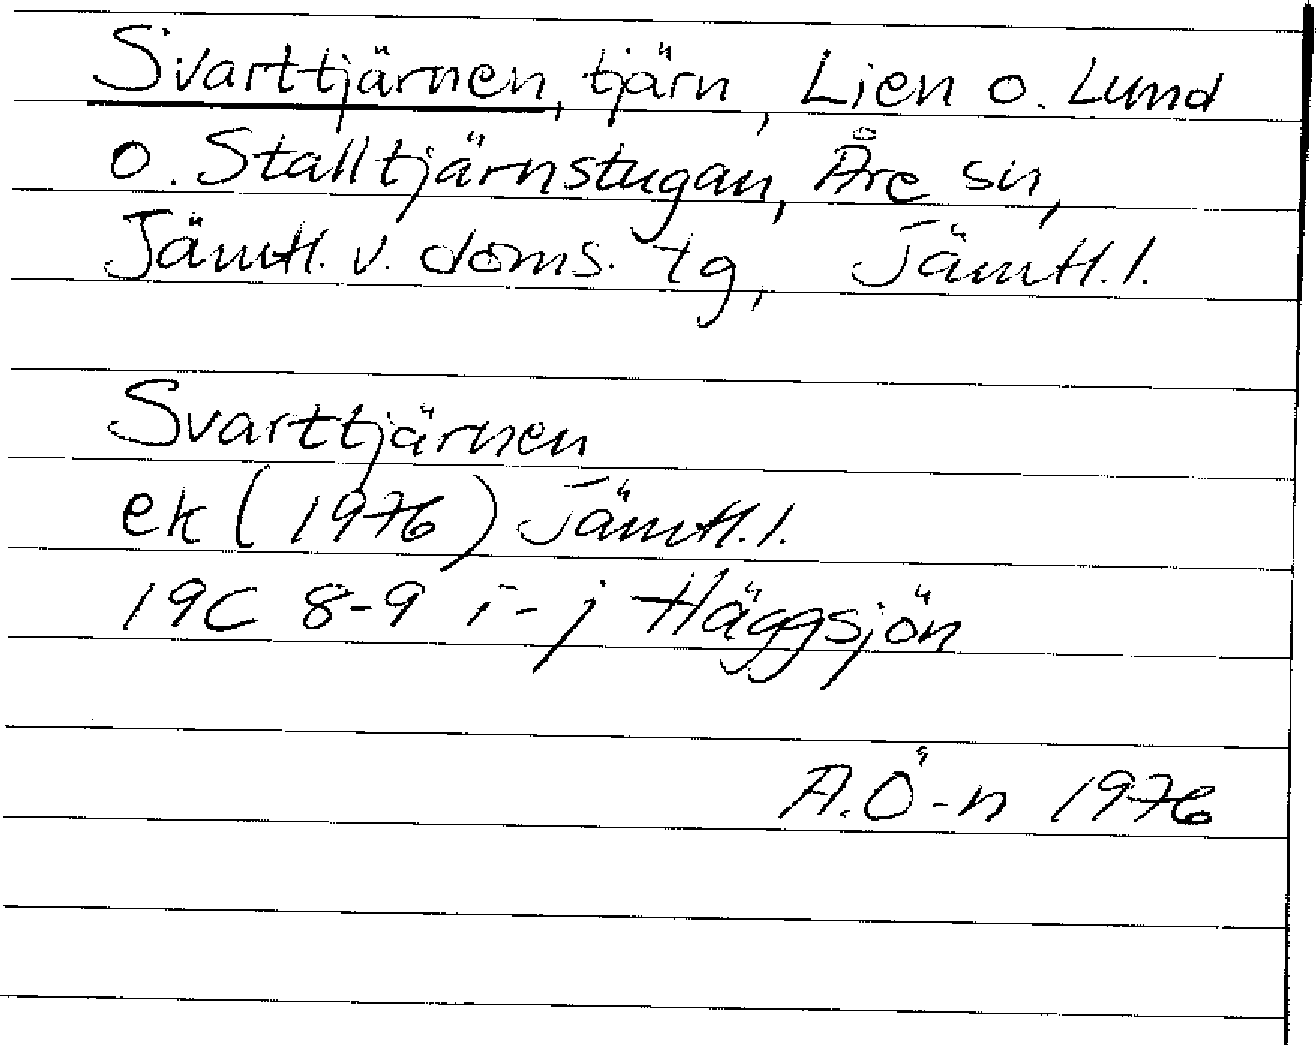 Svarttjärnen, tjärn, Lien o. Lund
o. Stalltjärnstugan, Åre sn,
Jämtl. v. doms. tg, Jämtl. l.
Svarttjärnen
ek (1976) Jämtl. l.
19C 8-9 i-j Häggsjön
A.Ö-n 1976